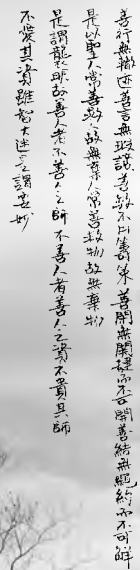 善行無轍迹善言無瑕謫善數不用籌策善閉無關楗而不可開善結無繩約而不可解
是以聖人常善救人故無棄人常善救物故無棄物
是謂襲明故善人者不善人之師不善人者善人之資不貴其師
不愛其資雖智大迷是謂要妙